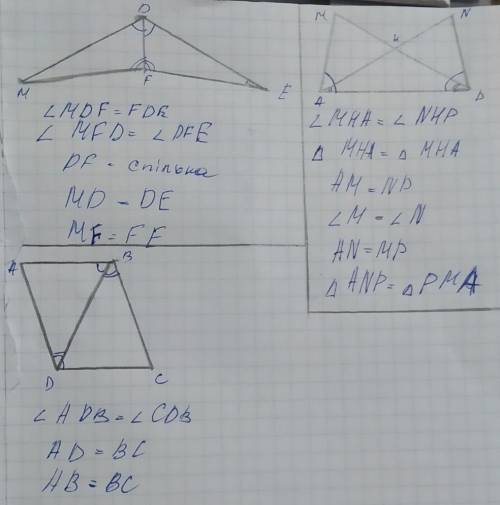 D
M
F
E
∠MDF = FDE
∠MFD = ∠DFE
DF - спільна
MD = DE
MF = FE
M
N
H
A
D
∠MHA = ∠NHP
△MHA = △MHA
AM = NP
∠M = ∠N
AN = MP
△ANP = △PMA
A
B
D
C
∠ADB = ∠CDB
AD = BC
AB = BC